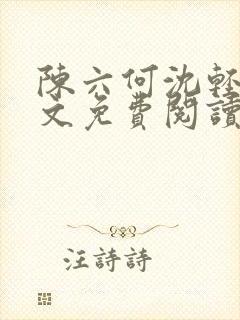 陳六何沈輕
文免費閱讀
汪詩詩